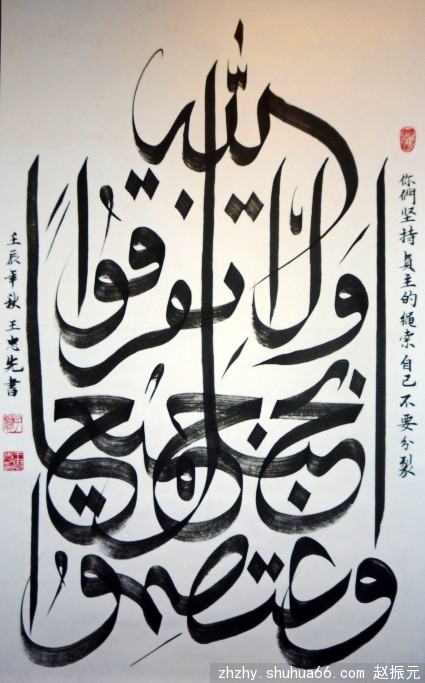 واعتصموا بحبل الله جميعا ولا تفرقوا
你們坚持真主的绳索自己不要分裂
壬辰年秋 王忠先書
zhzhy.shuhua66.com 赵振元